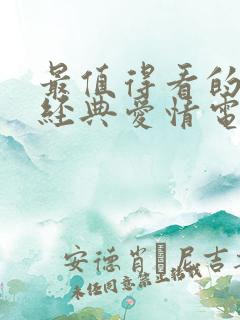 最值得看的
經典愛情電
安德肖 尼吉
未经同意禁止转载